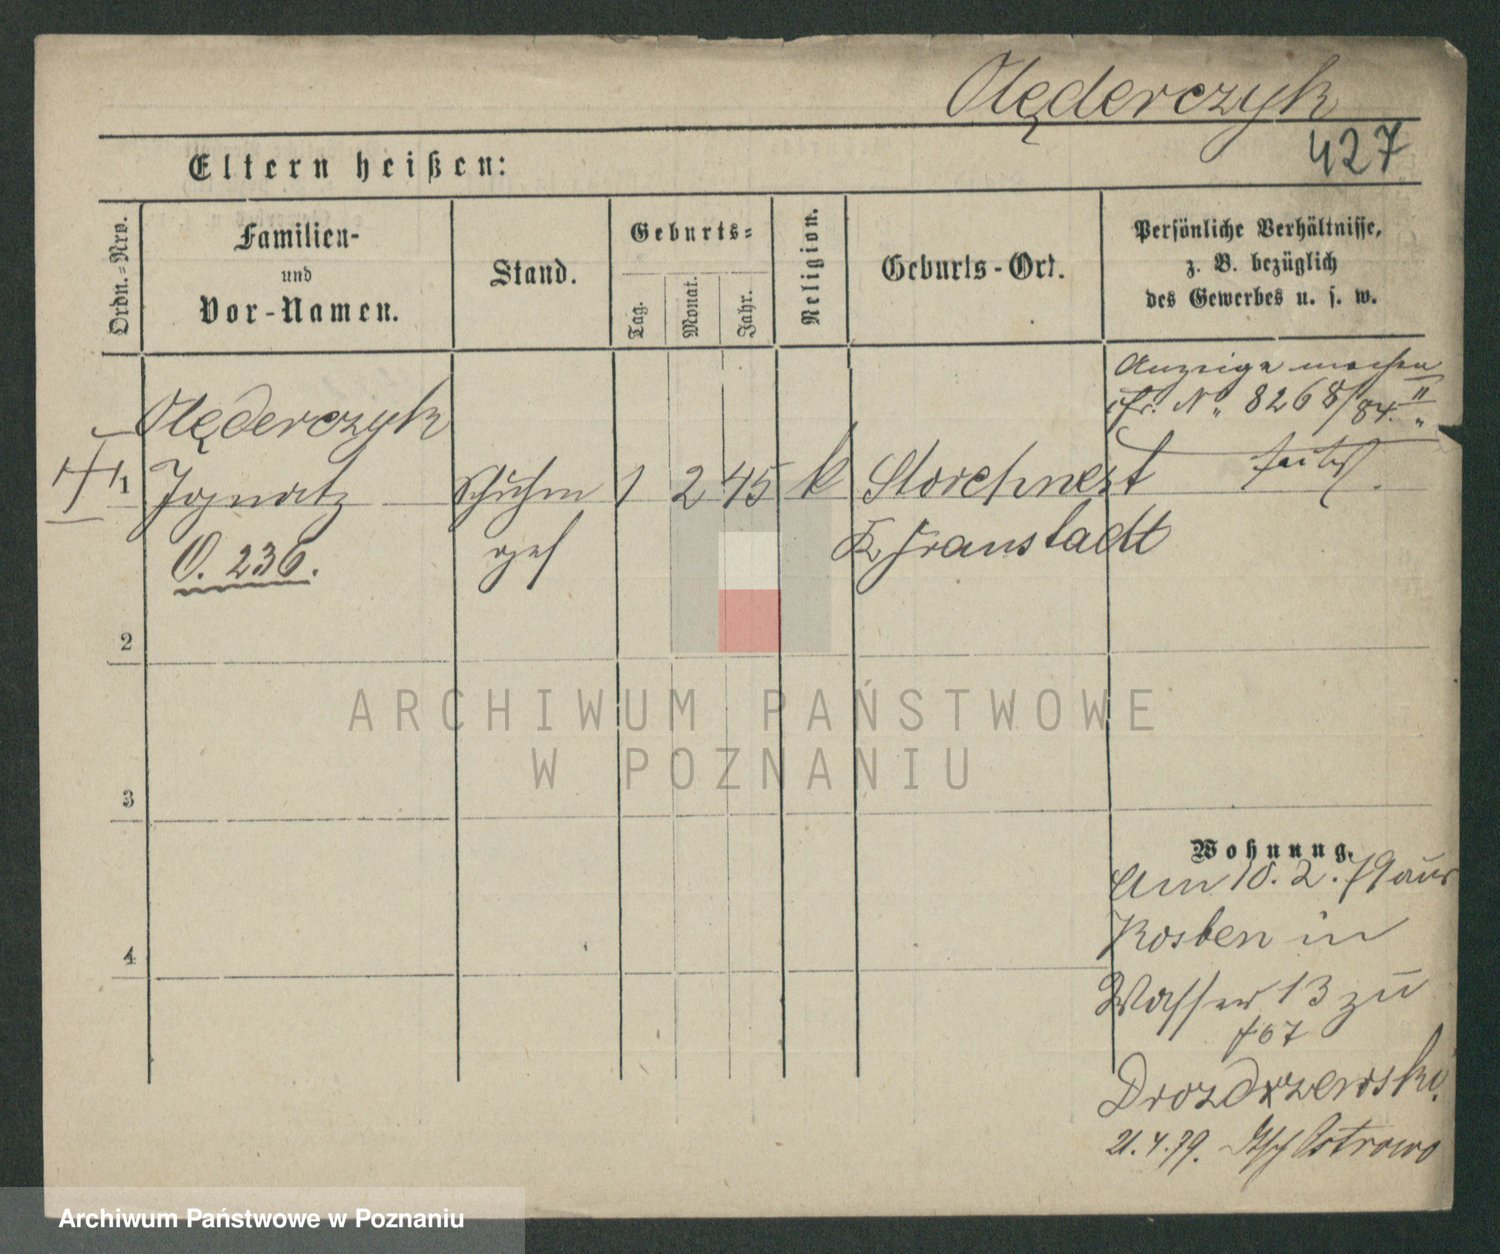 Olęderczyk
427
Eltern heißen:
Ordn.-Nro.
Familien-
und
Vor-Namen.
Stand.
Geburts-
Tag.
Monat.
Jahr.
Religion.
Geburts-Ort.
Persönliche Verhältnisse,
z. B. bezüglich
des Gewerbes u. s. w.
Anzeige machen
cfr. No 8268/84. II
Olęderczyk
1 Ignatz Schuhm 1 2 45 k Storchnest
O. 236. ges K Fraustadt
2
ARCHIWUM PAŃSTWOWE
W POZNANIU
3
Wohnung.
Am 10. 2. 79 aus
Kosten in
4
Wasser 13 zu
Drozdrzewski.
21.4.79. Ostrowo
Archiwum Państwowe w Poznaniu